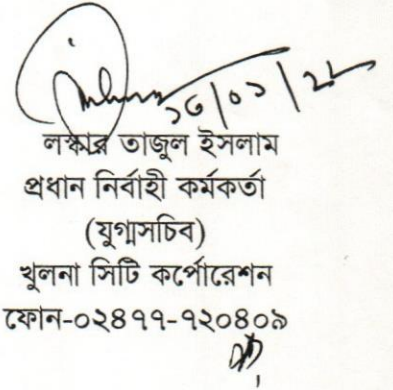 লস্কার তাজুল ইসলাম
প্রধান নির্বাহী কর্মকর্তা
(যুগ্মসচিব)
খুলনা সিটি কর্পোরেশন
ফোন-০২৪৭৭-৭২০৪০৯